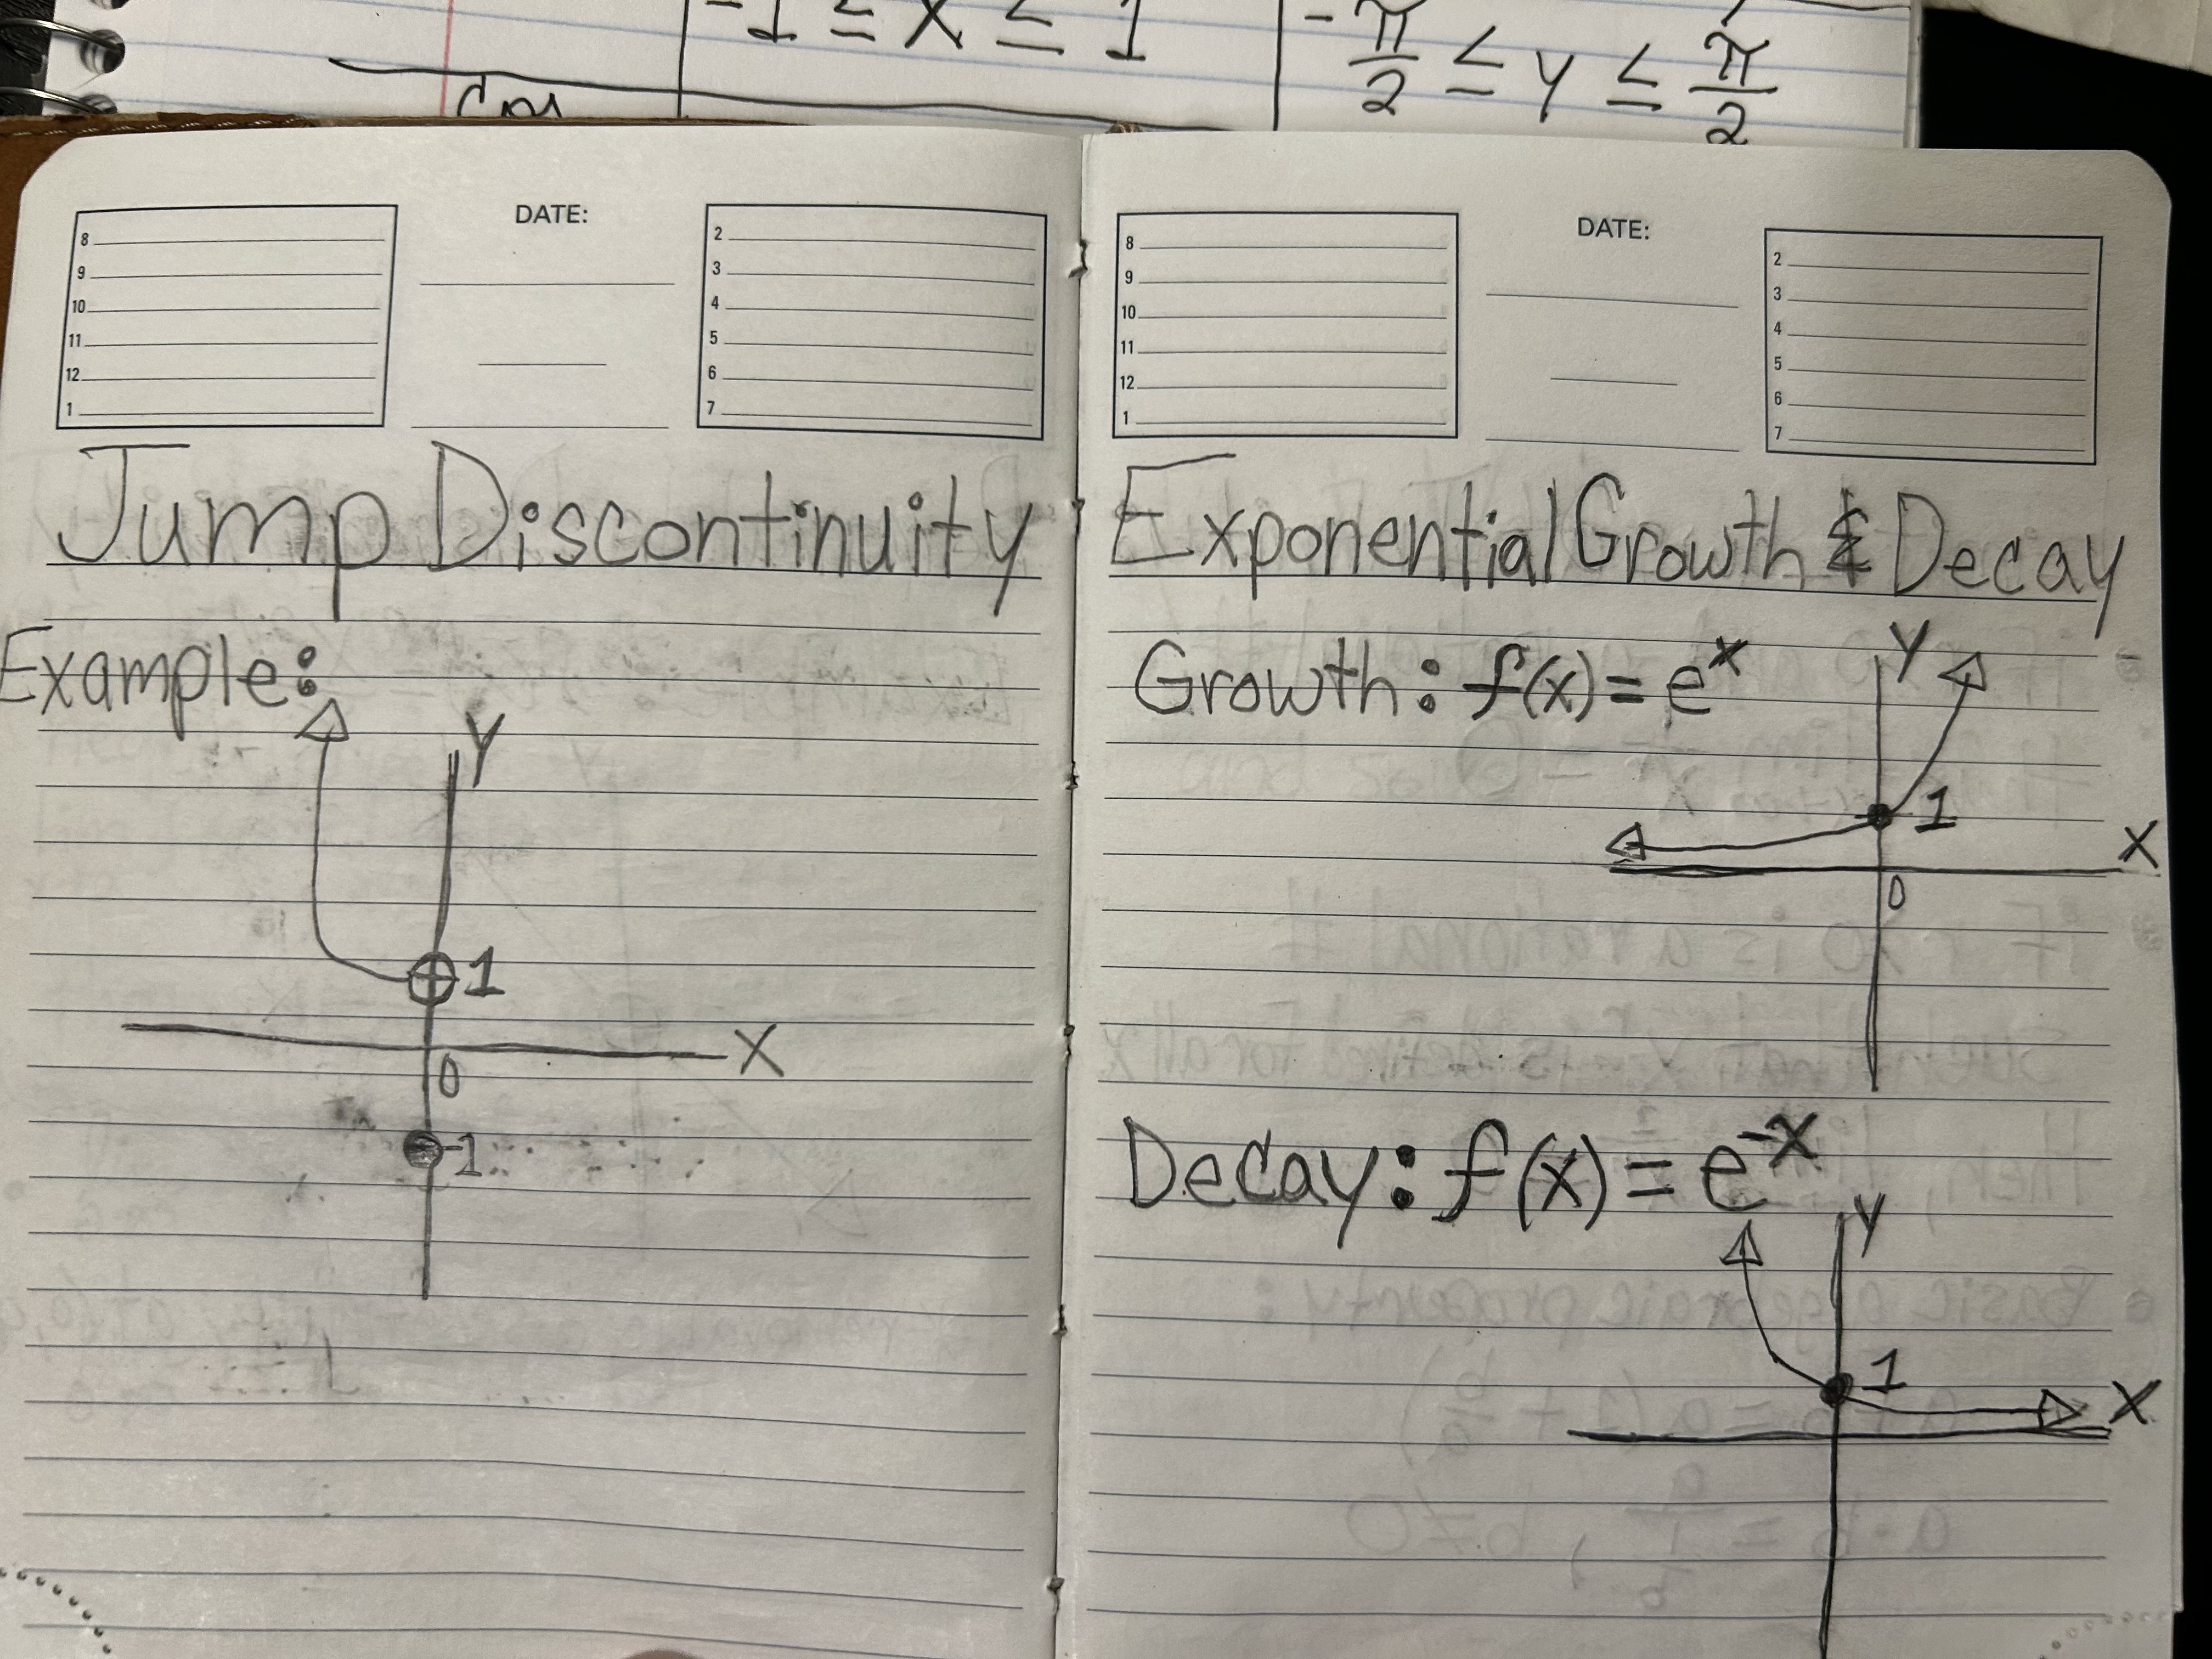 DATE:
8
9
10
11
12
1
2
3
4
5
6
7
Jump Discontinuity
Example:
Y
1
0
-1
X
DATE:
8
9
10
11
12
1
2
3
4
5
6
7
Exponential Growth & Decay
Growth: f(x) = e^x
Y
1
0
X
Decay: f(x) = e^-x
Y
1
X
-1 ≤ x ≤ 1
-π/2 ≤ y ≤ π/2